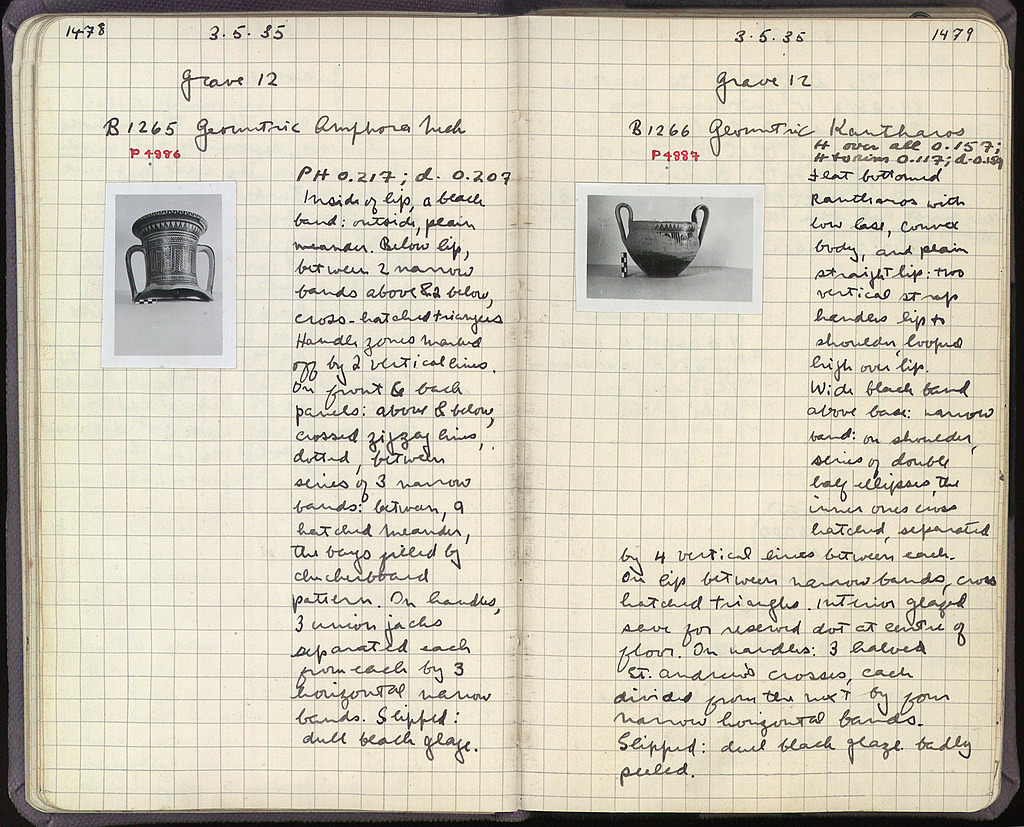 1478 3.5.35
Grave 12
B1265 Geometric Amphora Neck
P4886
PH 0.217; d. 0.207
Inside of lip, a black
band: outside, plain
meander. Below lip,
between 2 narrow
bands above & 2 below,
cross-hatched triangles
Handle zones marked
off by 2 vertical lines.
On front & back
panels: above & below,
crossed zigzag lines,
dotted, between
series of 3 narrow
bands: between, a
hatched meander,
the bays filled by
checkerboard
pattern. On handles,
3 union jacks
separated each
from each by 3
horizontal narrow
bands. Slipped:
dull black glaze.
3.5.35 1479
Grave 12
B1266 Geometric Kantharos
P4887
H over all 0.157;
H to rim 0.117; d.
flat bottomed
Kantharos with
low base, convex
body, and plain
straight lip: two
vertical strap
handles lip to
shoulder, looped
high over lip.
Wide black band
above base: narrow
band: on shoulder,
series of double
half ellipses, the
inner ones cross
hatched, separated
by 4 vertical lines between each.
On lip between narrow bands, cross
hatched triangles. Interior glazed
save for reserved dot at centre of
floor. On handles: 3 halved
St. Andrew's crosses, each
divided from the next by four
narrow horizontal bands.
Slipped: dull black glaze badly
peeled.